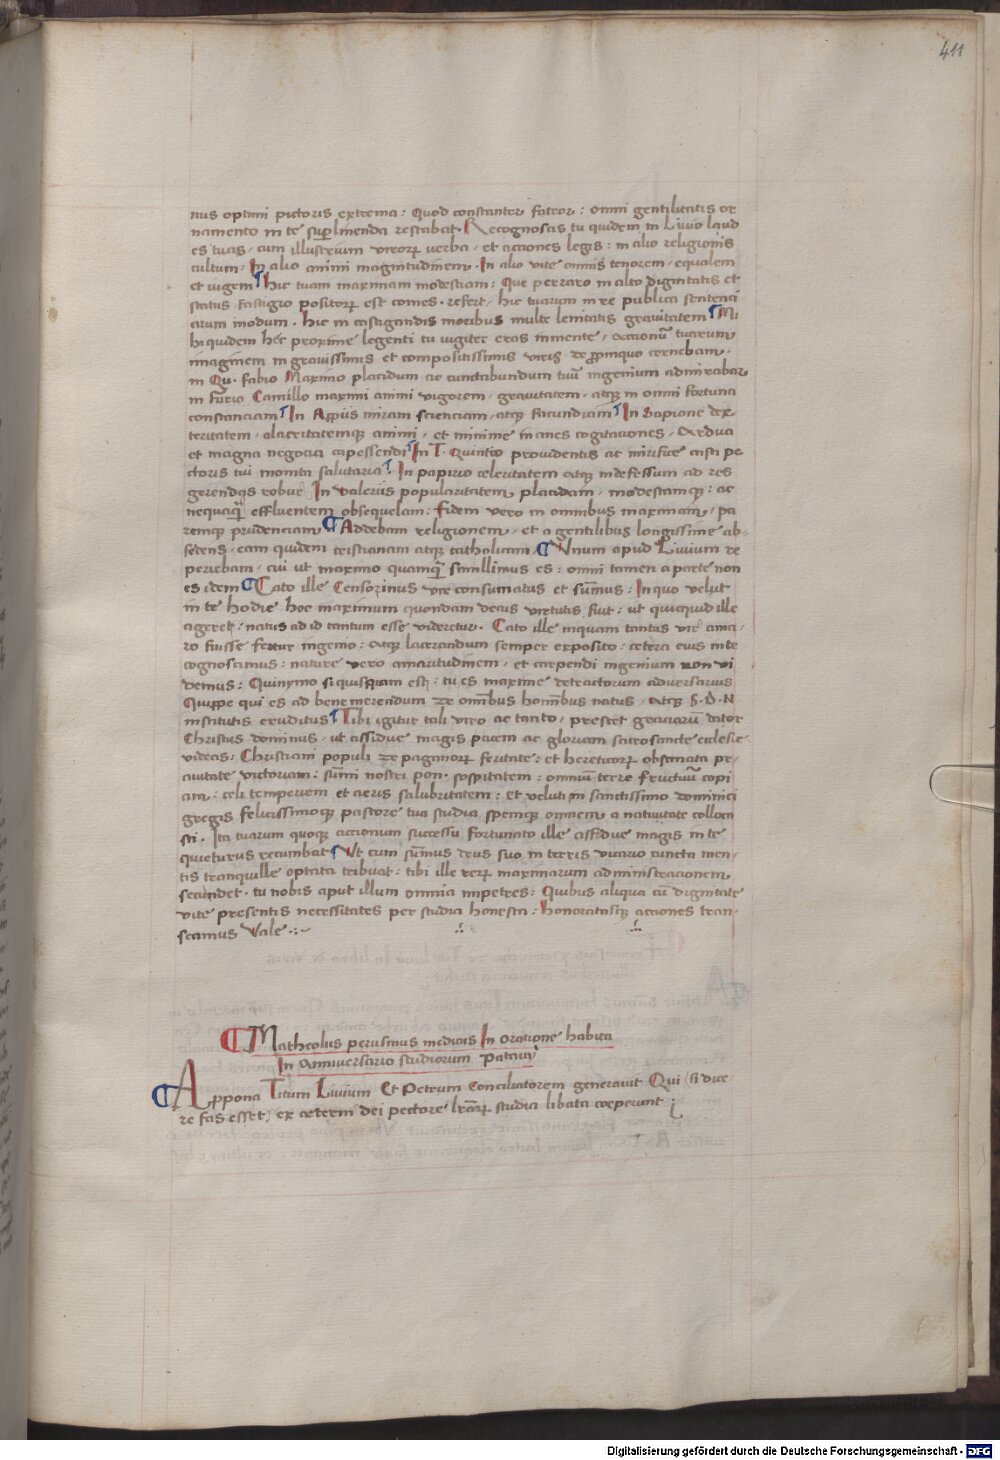 411
nus optimi pictoris extrema: Quod constanter fateor: omni gentilitatis or
namento in te superlinenda restabat. Recognoscas tu quidem in Livio laud
es tuas, cum illustrium virorum verba, et acciones legis: in alio religionis
cultum. In alio animi magnitudinem. In alio vite omnis tenorem, equalem
et vigem ¶ hic tuam maximam modestiam: Que perraro in alto dignitatis et
status fastigio positorum est comes. refert, hic tuarum in re publica sentenci
arum modum. hic in castigandis moribus multe lenitatis gravitatem ¶ Mi
hi quidem hec proxime legenti tu iugiter eras in mente, Accionum tuarum
imaginem in gravissimis et compositissimis viris de propinquo cernebam.
in Qu. Fabio Maximo placidum ac cunctabundum tuum ingenium admirabar
in Furio Camillo maximi animi vigorem, gravitatem, atque in omni fortuna
constanciam ¶ In Appiis miram scienciam, atque facundiam ¶ In Scipione dex-
teritatem, alacritatemque animi, et minime inanes cogitaciones, Ardua
et magna negocia capessendi ¶ In T. Quintio providentis ac mirifice casti pe
ctoris tui monita salutaria ¶. In papirio celeritatem atque indefessum ad res
gerendas robur. In valeriis popularitatem, placidam, modestamque: ac
nequaquam effluentem obsequelam: Fidem vero in omnibus maximam, pa
remque prudenciam ¶ Addebam religionem, et a gentilibus longissime ab-
sedens, eam quidem cristianam atque catholicam ¶ Unum apud Livium re
periebam, cui ut maximo quamquam simillimus es: omni tamen a parte non
es idem ¶ Cato ille Censorinus vir consumatus et summus: In quo velut
in te hodie hoc maximum quondam decus virtutis fuit: ut quicquid ille
ageret: natus ad id tantum esse videretur. Cato ille inquam tantus vir ama-
ro fuisse fertur ingenio: atque lacerandum semper exposito: cetera eius in te
cognoscimus: nature vero amaritudinem, et carpendi ingenium non vi
demus: Quinymo si quisquam est: tu es maxime detractorum adversarius
Quippe qui es ad bene merendum de omnibus hominibus natus, atque S. D. N
institutis eruditus ¶ Tibi igitur tali viro ac tanto, prestet graciarum dator
Christus dominus, ut assidue magis pacem ac gloriam sacrosancte ecclesie
videas: Christiani populi de paganorum feritate: et hereticorum obstinata pr
avitate victoriam: summi nostri pon. sospitatem: omnium terre fructuum copi
am: celi temperiem et aeris salubritatem: et veluti in sanctissimo dominici
gregis felicissimoque pastore tua studia spemque omnem a nativitate colloca
sti. Ita tuarum quoque accionum successu fortunato ille assidue magis in te
quieturus recumbat ¶ Ut cum summus deus suo in terris vicario cuncta men-
tis tranquille optata tribuat: tibi ille rerum maximarum administracionem
secundet. tu nobis aput illum omnia impetres: Quibus aliqua cum dignitate
vite presentis necessitates per studia honesta: honoratasque acciones tran-
seamus Vale
¶ Matheolus perusinus medicus In oratione habita
In Anniversario studiorum Patavii
¶ Appona Titum Livium Et Petrum Conciliatorem generavit Qui (si dice
re fas esset) ex aeterni dei pectore litterarum studia libata coeperunt
Digitalisierung gefördert durch die Deutsche Forschungsgemeinschaft - DFG